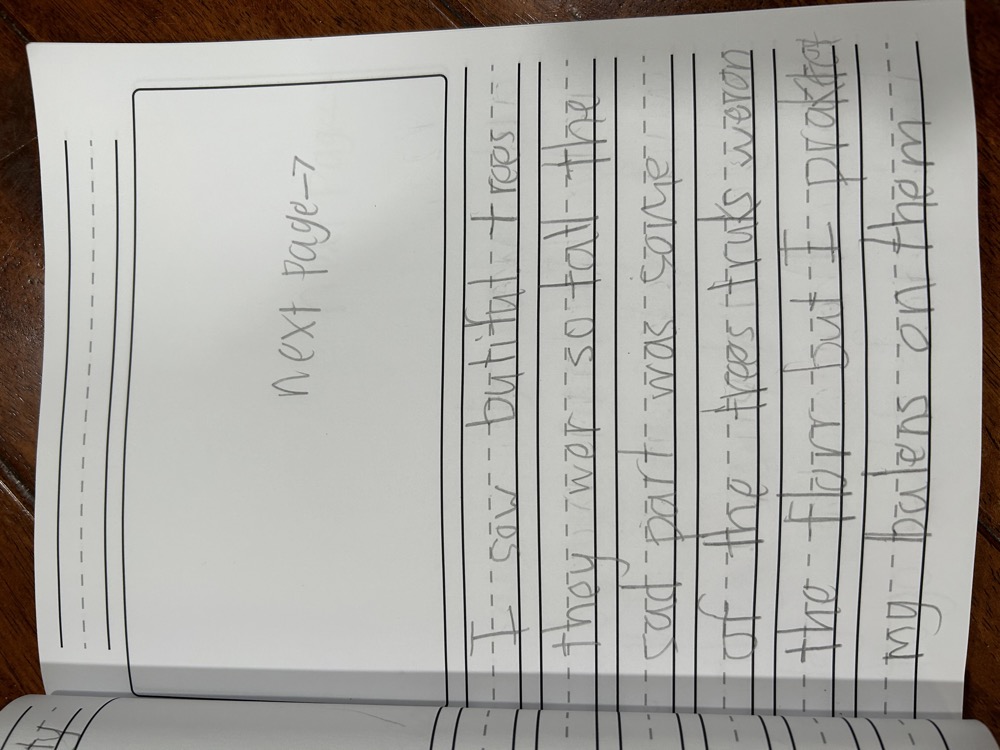 next page →
I saw butiful trees
they wer so tall the
sad part was some
of the trees truks weron
the florr but I praktist
my balens on them
ty